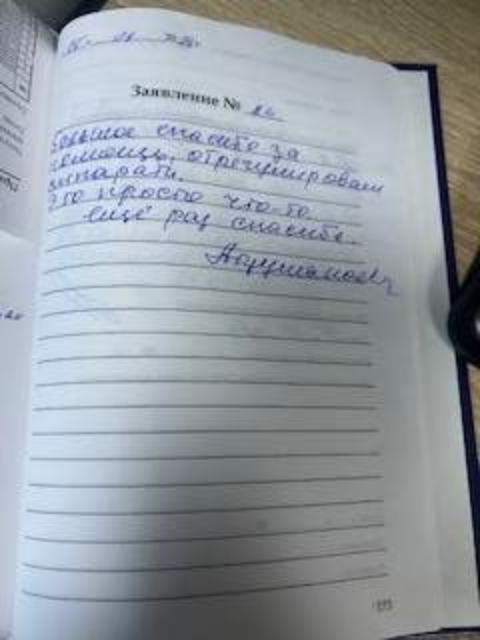 Заявление № 20
Большое спасибо за
помощь, отрегулировали
аппарат.
Это просто что-то
ещё раз спасибо.